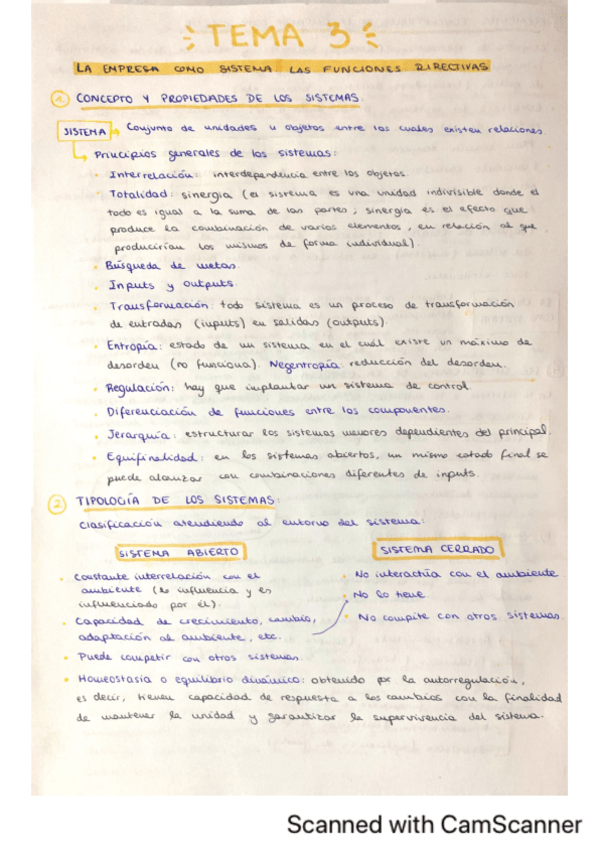 TEMA 3
LA EMPRESA COMO SISTEMA. LAS FUNCIONES DIRECTIVAS
1. CONCEPTO Y PROPIEDADES DE LOS SISTEMAS.
SISTEMA → Conjunto de unidades u objetos entre los cuales existen relaciones.
Principios generales de los sistemas:
• Interrelación: interdependencia entre los objetos.
• Totalidad: sinergia (el sistema es una unidad indivisible donde el
todo es igual a la suma de las partes; sinergia es el efecto que
produce la combinación de varios elementos, en relación al que
producirían los mismos de forma individual).
• Búsqueda de metas.
• Inputs y outputs.
• Transformación: todo sistema es un proceso de transformación
de entradas (inputs) en salidas (outputs).
• Entropía: estado de un sistema en el cuál existe un máximo de
desorden (no funciona). Negentropía: reducción del desorden.
• Regulación: hay que implantar un sistema de control.
• Diferenciación de funciones entre los componentes.
• Jerarquía: estructurar los sistemas menores dependientes del principal.
• Equifinalidad: en los sistemas abiertos, un mismo estado final se
puede alcanzar con combinaciones diferentes de inputs.
2. TIPOLOGÍA DE LOS SISTEMAS:
Clasificación atendiendo al entorno del sistema:
SISTEMA ABIERTO
• Constante interrelación con el
ambiente (lo influencia y es
influenciado por él).
• Capacidad de crecimiento, cambio,
adaptación al ambiente, etc.
• Puede competir con otros sistemas.
• Homeostasia o equilibrio dinámico: obtenido por la autorregulación,
es decir, tienen capacidad de respuesta a los cambios con la finalidad
de mantener la unidad y garantizar la supervivencia del sistema.
SISTEMA CERRADO
• No interactúa con el ambiente
• No lo tiene.
• No compite con otros sistemas.
Scanned with CamScanner